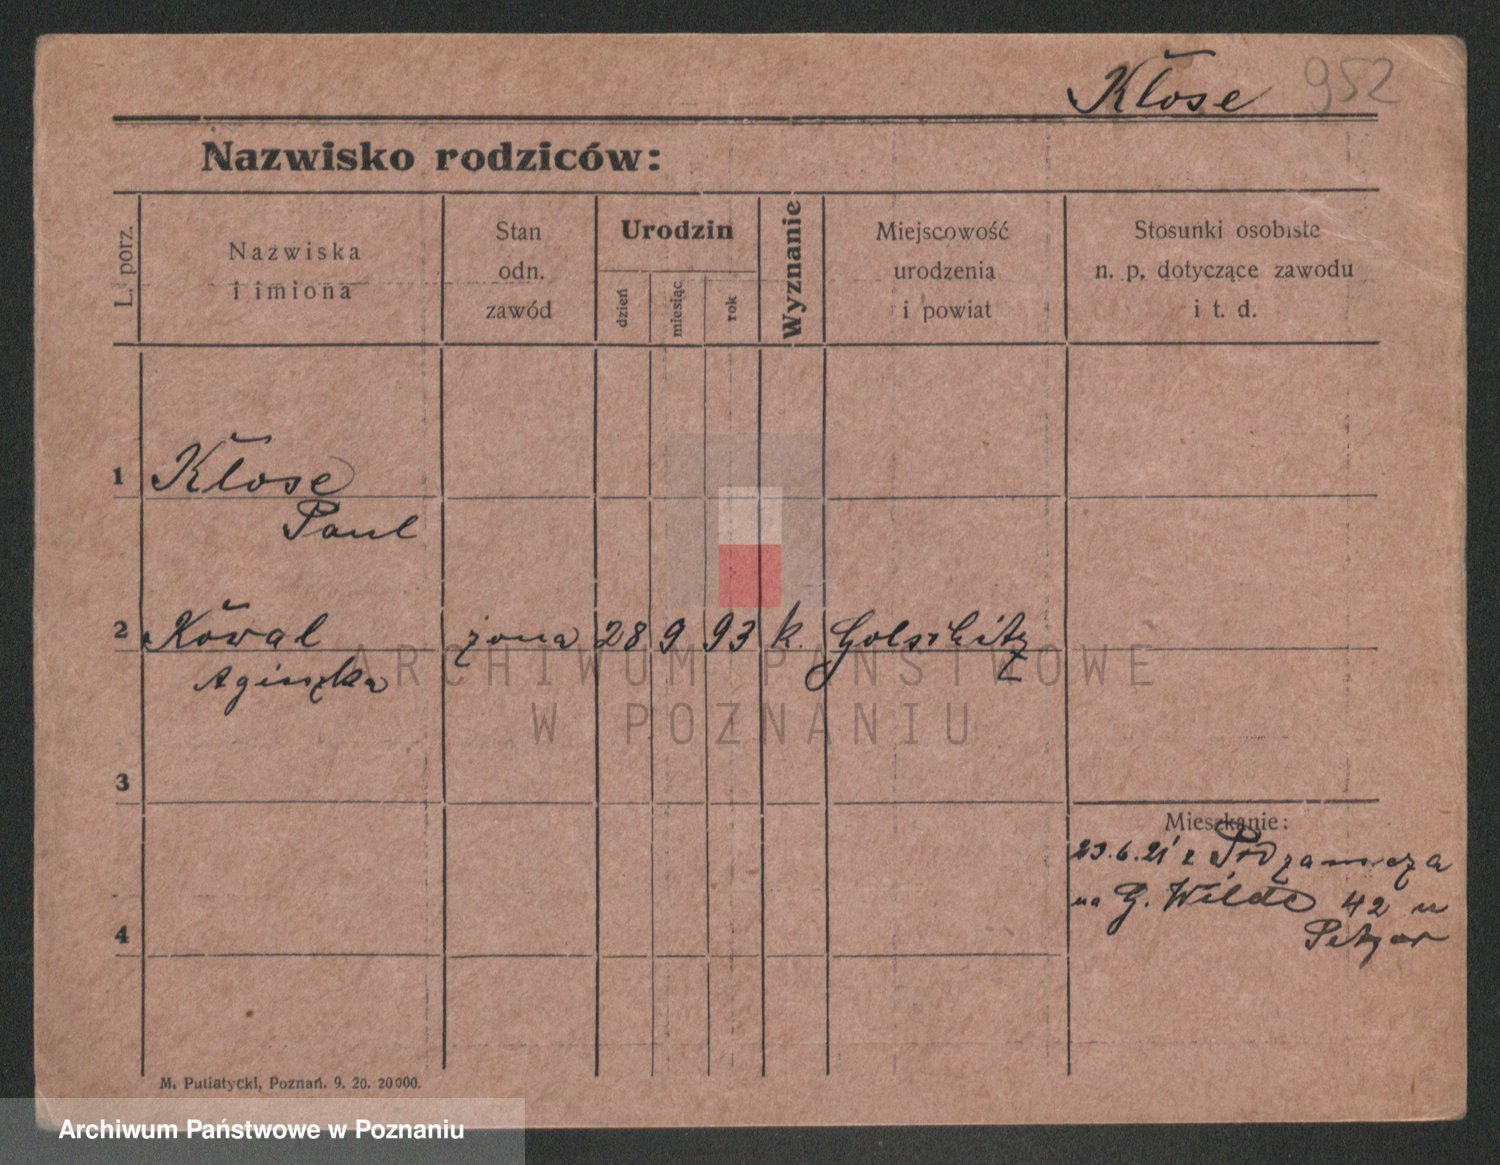 Kłose 952
Nazwisko rodziców:
L. porz.
Nazwiska
i imiona
Stan
odn.
zawód
Urodzin
dzień
miesiąc
rok
Wyznanie
Miejscowość
urodzenia
i powiat
Stosunki osobiste
n. p. dotyczące zawodu
i t. d.
1 Kłose
Paul
2 Kowal żona 28 9 93 k.
Agiszka
ARCHIWUM PAŃSTWOWE
W POZNANIU
3
Mieszkanie:
23.6.21 z Podzamcza
na G. Wilda 42 u
4
M. Putiatycki, Poznań. 9. 20. 20000.
Archiwum Państwowe w Poznaniu